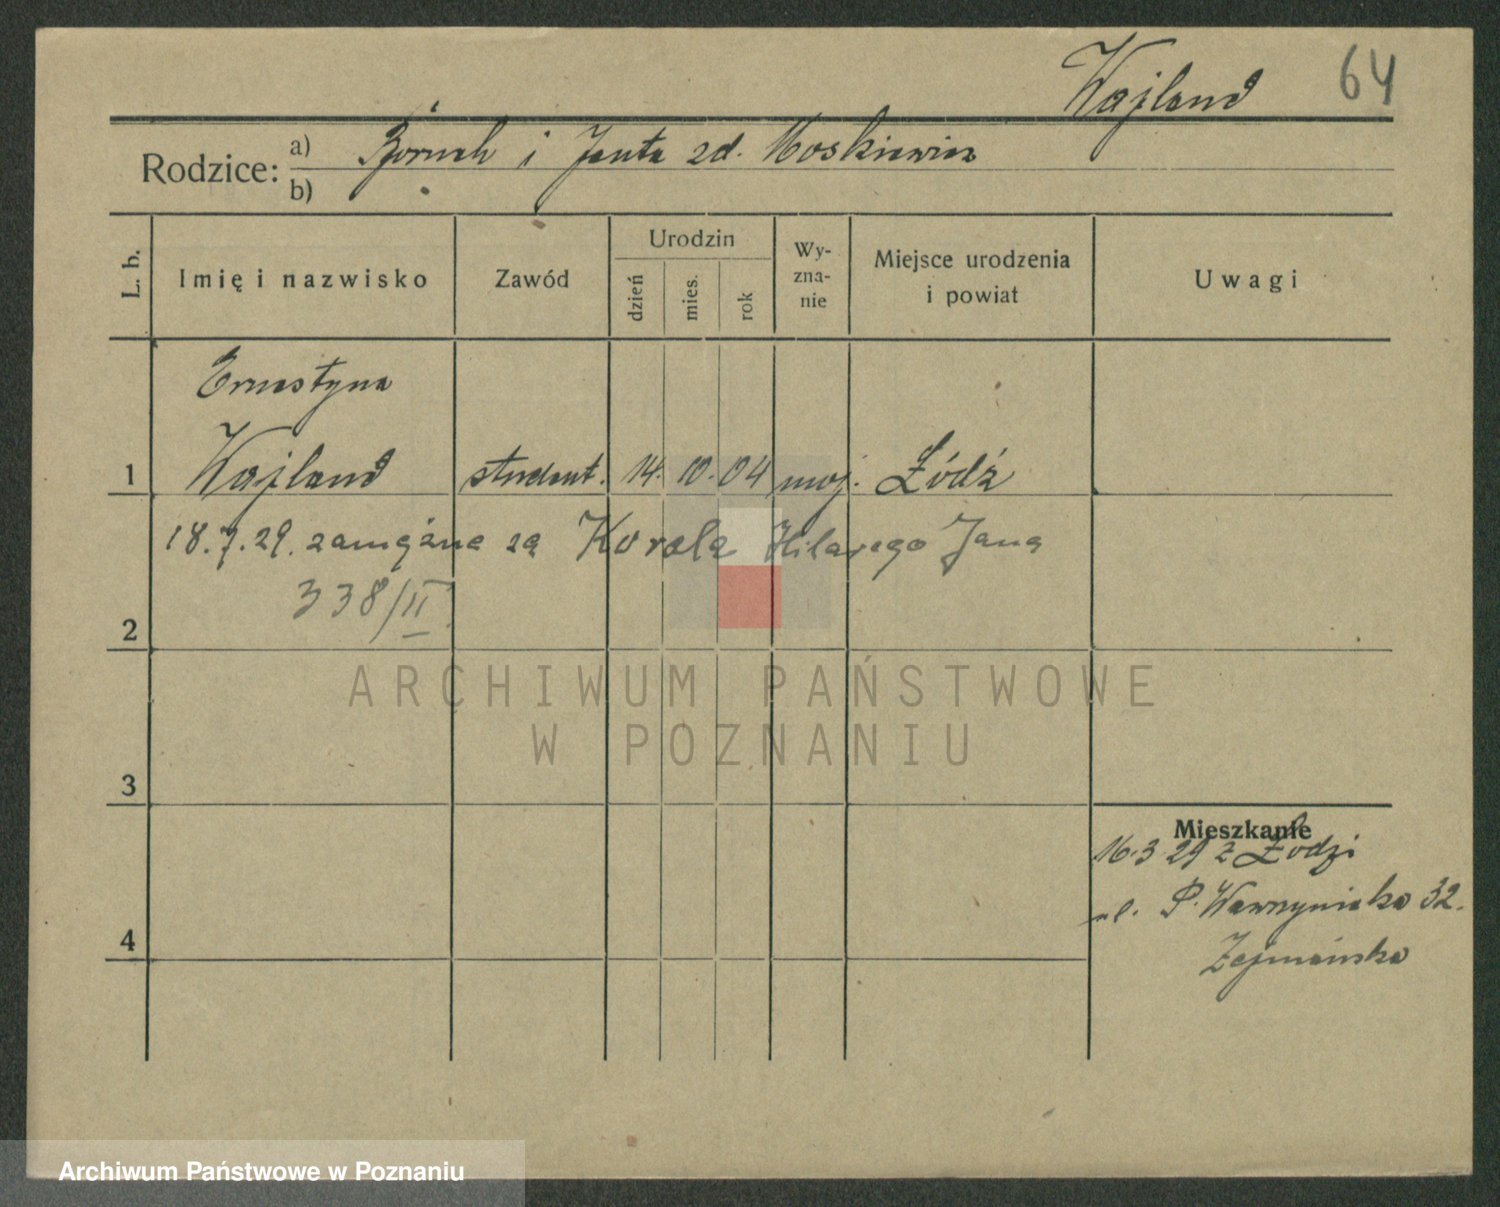 Wajland 64
Rodzice: a) Boruch i Jenta zd. Moskiewicz
b)
L. b. Imię i nazwisko Zawód Urodzin dzień mies. rok Wyznanie Miejsce urodzenia i powiat Uwagi
Ernestyna
1 Wajland student. 14. 10. 04 moj. Łódź
18.7.29. zamężna za Korala Hilarego Jana
338/II
2
ARCHIWUM PAŃSTWOWE
W POZNANIU
3
Mieszkanie
16.3 29 z Łodzi
ul. P. Wawrzyniaka 32.
4
Zejmańska
Archiwum Państwowe w Poznaniu